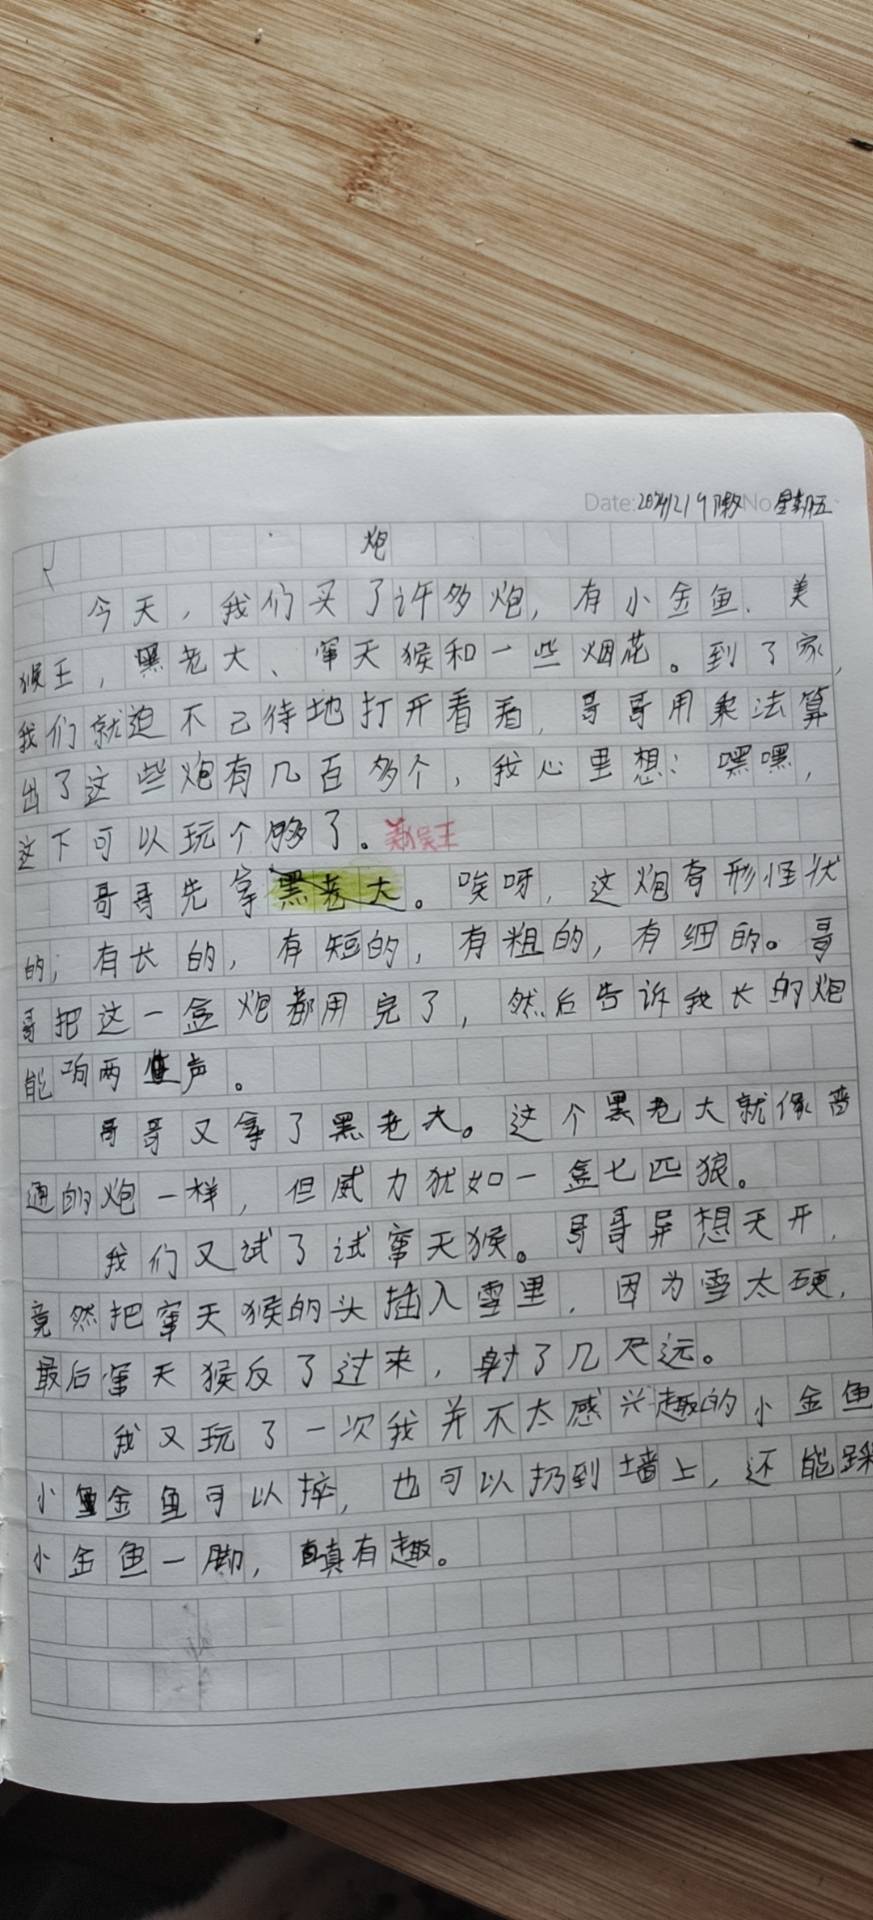 Date: 2024/2/9 除夕 No 星期五
炮
今天，我们买了许多炮，有小金鱼、美
猴王，黑老大、窜天猴和一些烟花。到了家，
我们就迫不己待地打开看看，哥哥用乘法算
出了这些炮有几百多个，我心里想：嘿嘿，
这下可以玩个够了。美猴王
哥哥先拿黑老大。唉呀，这炮奇形怪状
的，有长的，有短的，有粗的，有细的。哥
哥把这一盒炮都用完了，然后告诉我长的炮
能响两声。
哥哥又拿了黑老大。这个黑老大就像普
通的炮一样，但威力犹如一盒七匹狼。
我们又试了试窜天猴。哥哥异想天开，
竟然把窜天猴的头插入雪里，因为雪太硬，
最后窜天猴反了过来，射了几尺远。
我又玩了一次我并不太感兴趣的小金鱼
小金鱼可以摔，也可以扔到墙上，还能踩
小金鱼一脚，真有趣。